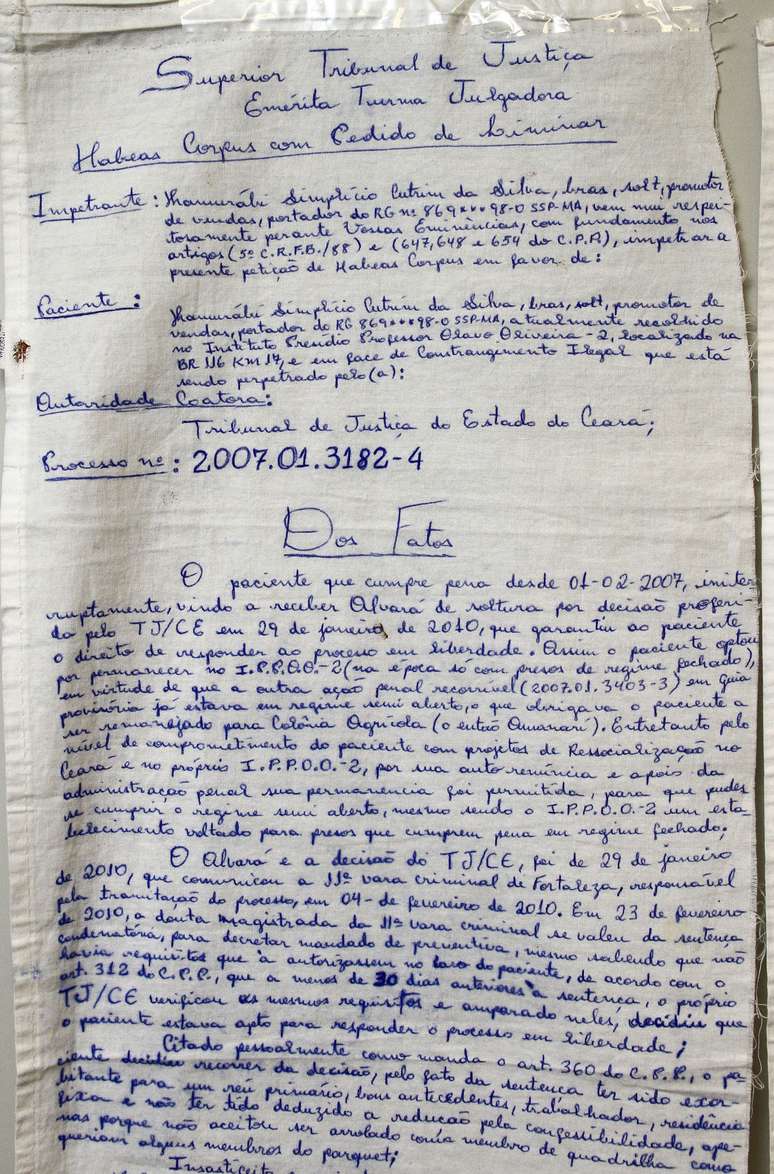 Superior Tribunal de Justiça
Emérita Turma Julgadora
Habeas Corpus com Pedido de Liminar
Impetrante: Khamurábi Simplício Cutrim da Silva, bras, solt, promotor
de vendas, portador do RG nº 869***98-0 SSP-MA, vem mui respei-
tosamente perante Vossas Eminências, com fundamento nos
artigos (5º C.R.F.B./88) e (647, 648 e 654 do C.P.P.), impetrar a
presente petição de Habeas Corpus em favor de:
Paciente:
Khamurábi Simplício Cutrim da Silva, bras, solt, promotor de
vendas, portador do RG 869***98-0 SSP-MA, atualmente recolhido
no Instituto Presídio Professor Olavo Oliveira-2, localizado na
BR 116 KM 17, e em face de Constrangimento Ilegal que está
sendo perpetrado pelo(a):
Autoridade Coatora:
Tribunal de Justiça do Estado do Ceará;
Processo nº: 2007.01.3182-4
Dos Fatos
O paciente que cumpre pena desde 01-02-2007, ininter
ruptamente, vindo a receber Alvará de soltura por decisão proferi-
da pelo TJ/CE em 29 de janeiro de 2010, que garantiu ao paciente
o direito de responder ao processo em liberdade. Assim o paciente optou
por permanecer no I.P.P.O.O.-2 (na época só com presos de regime fechado),
em virtude de que a outra ação penal recorrível (2007.01.3403-3) em guia
provisória já estava em regime semi aberto, o que obrigava o paciente a
ser remanejado para Colônia Agrícola (o então Amanari). Entretanto pelo
nível de comprometimento do paciente com projetos de Ressocialização no
Ceará e no próprio I.P.P.O.O.-2, por sua auto-renúncia e apois da
administração penal sua permanencia foi permitida, para que pudes
se cumprir o regime semi aberto, mesmo sendo o I.P.P.O.O.-2 um esta-
belecimento voltado para presos que cumprem pena em regime fechado;
O Alvará e a decisão do TJ/CE, foi de 29 de janeiro
de 2010, que comunicou a 11ª vara criminal de Fortaleza, responsável
pela tramitação do processo, em 04- de fevereiro de 2010. Em 23 de fevereiro
de 2010, a douta magistrada da 11ª vara criminal se valeu da sentença
condenatória, para decretar mandado de preventiva, mesmo sabendo que não
havia requisitos que a autorizassem no caso do paciente, de acordo com o
art. 312 do C.P.P., que a menos de 30 dias anteriores a sentença, o próprio
TJ/CE verificou os mesmos requisitos e amparado neles, decidiu que
o paciente estava apto para responder o processo em liberdade;
Citado pessoalmente como manda o art. 360 do C.P.P., o pa-
ciente decidiu recorrer da decisão, pelo fato da sentença ter sido exor-
bitante para um réu primário, bons antecedentes, trabalhador, residência
fixa e não ter tido deduzido a redução pela confessibilidade, ape-
nas porque não aceitou ser arrolado como membro de quadrilha como
queriam alguns membros do parquet;